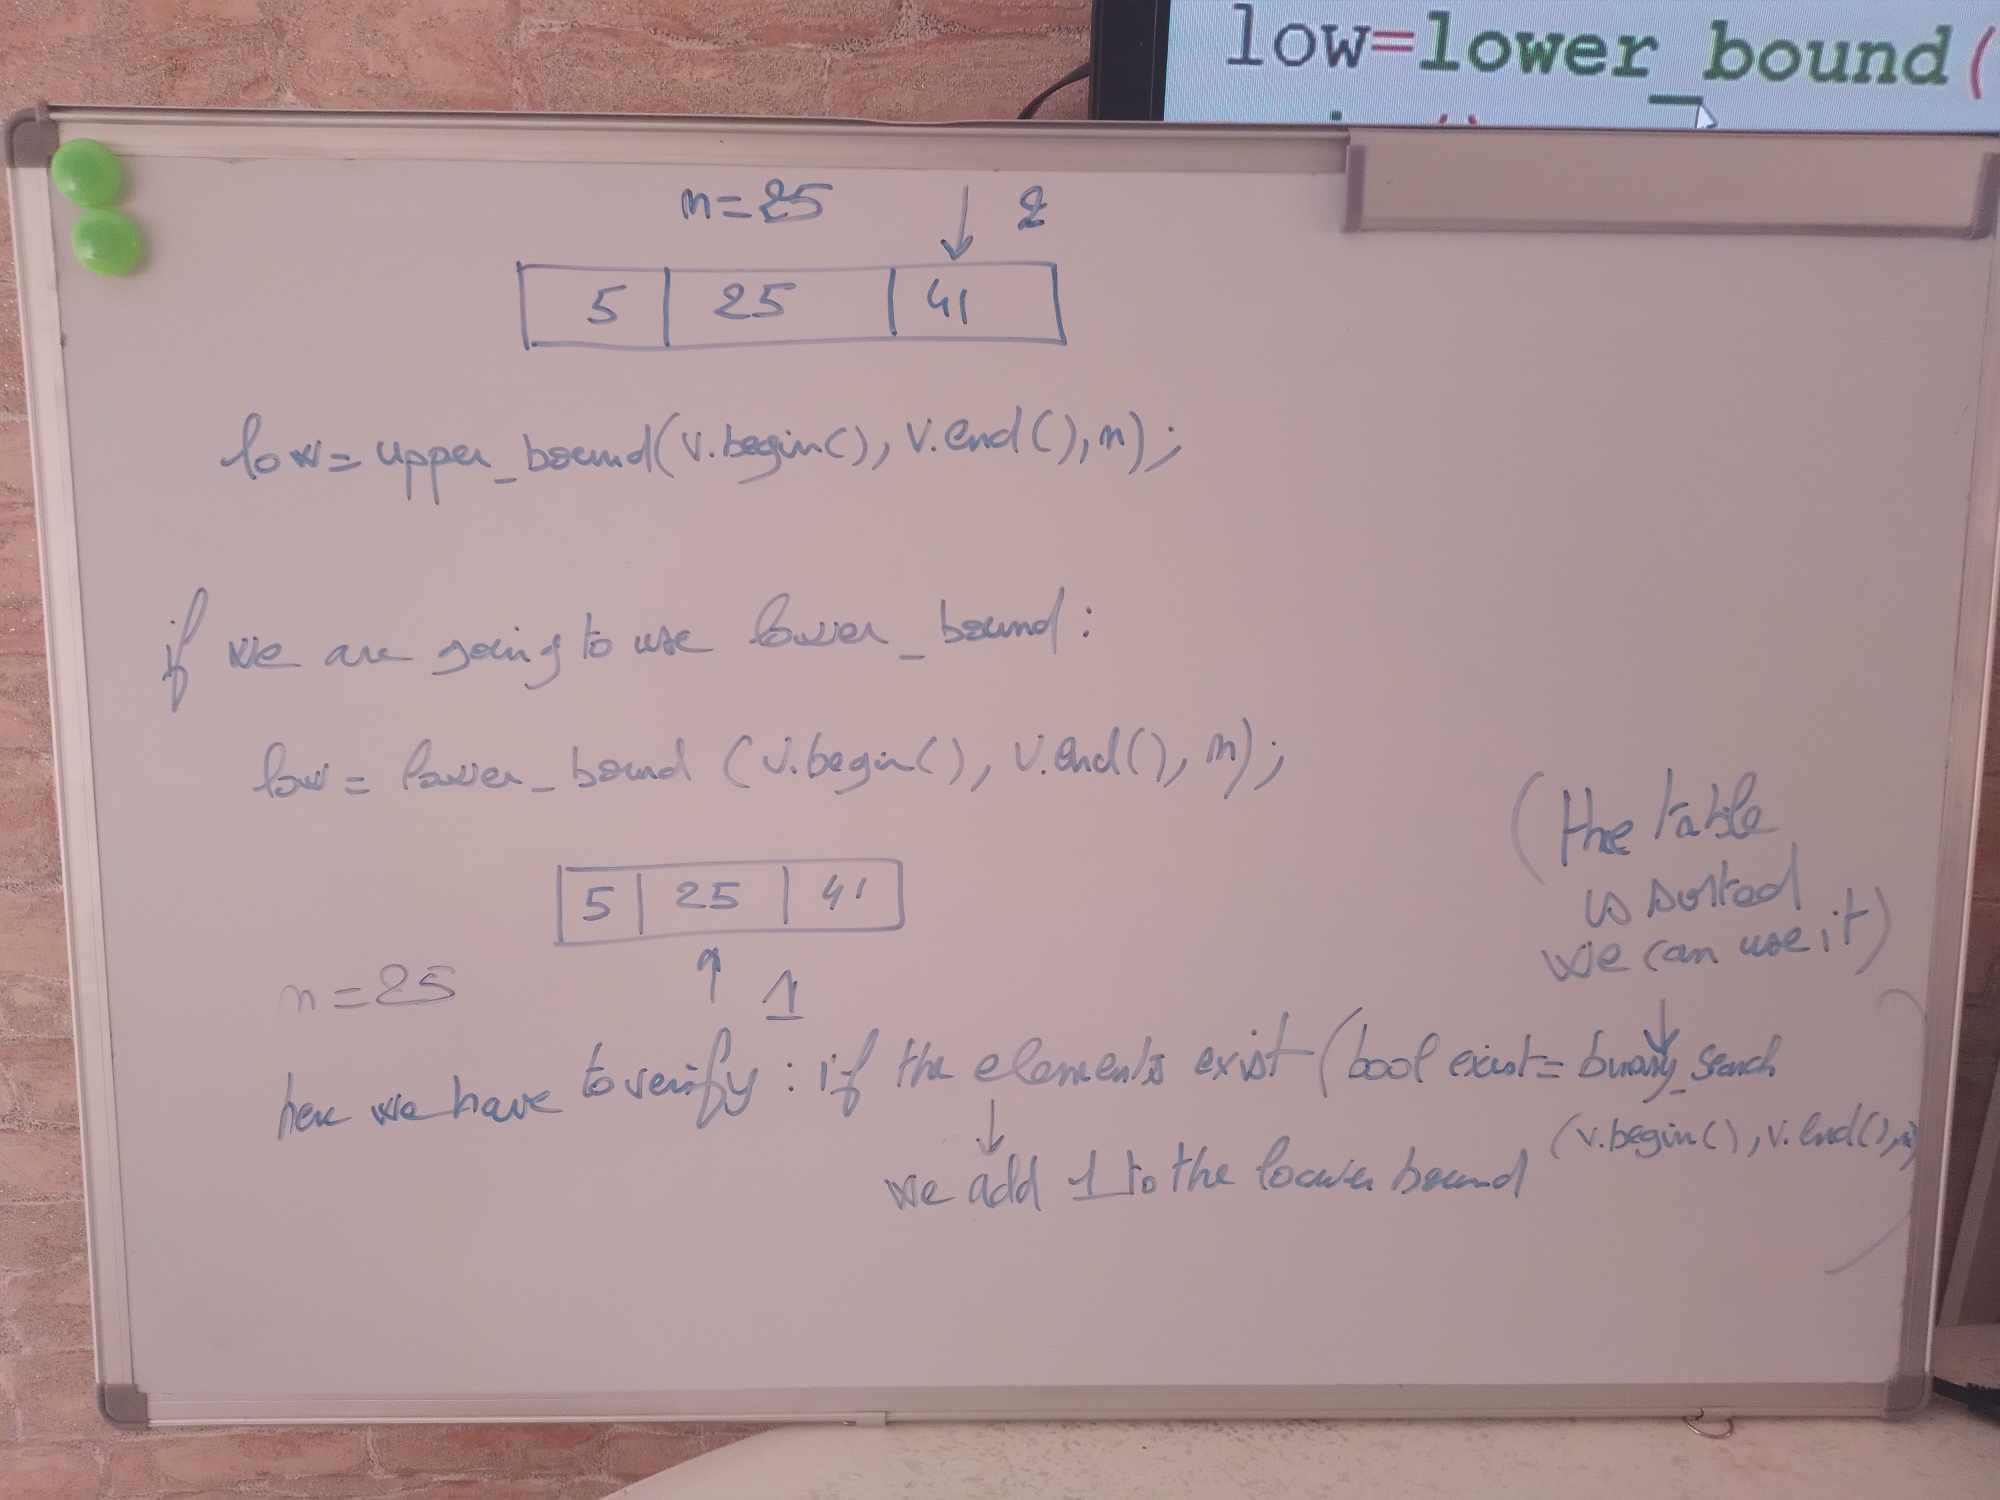 low=lower_bound(
n=25 2
5 25 41
low=upper_bound(v.begin(), v.end(), n);
if we are going to use lower_bound:
low= lower_bound (v.begin(), v.end(), n);
(the table
is sorted
we can use it)
5 25 41
n=25 1
here we have to verify: if the elements exist (bool exist= binary_search
(v.begin(), v.end(), n)
we add 1 to the lower bound